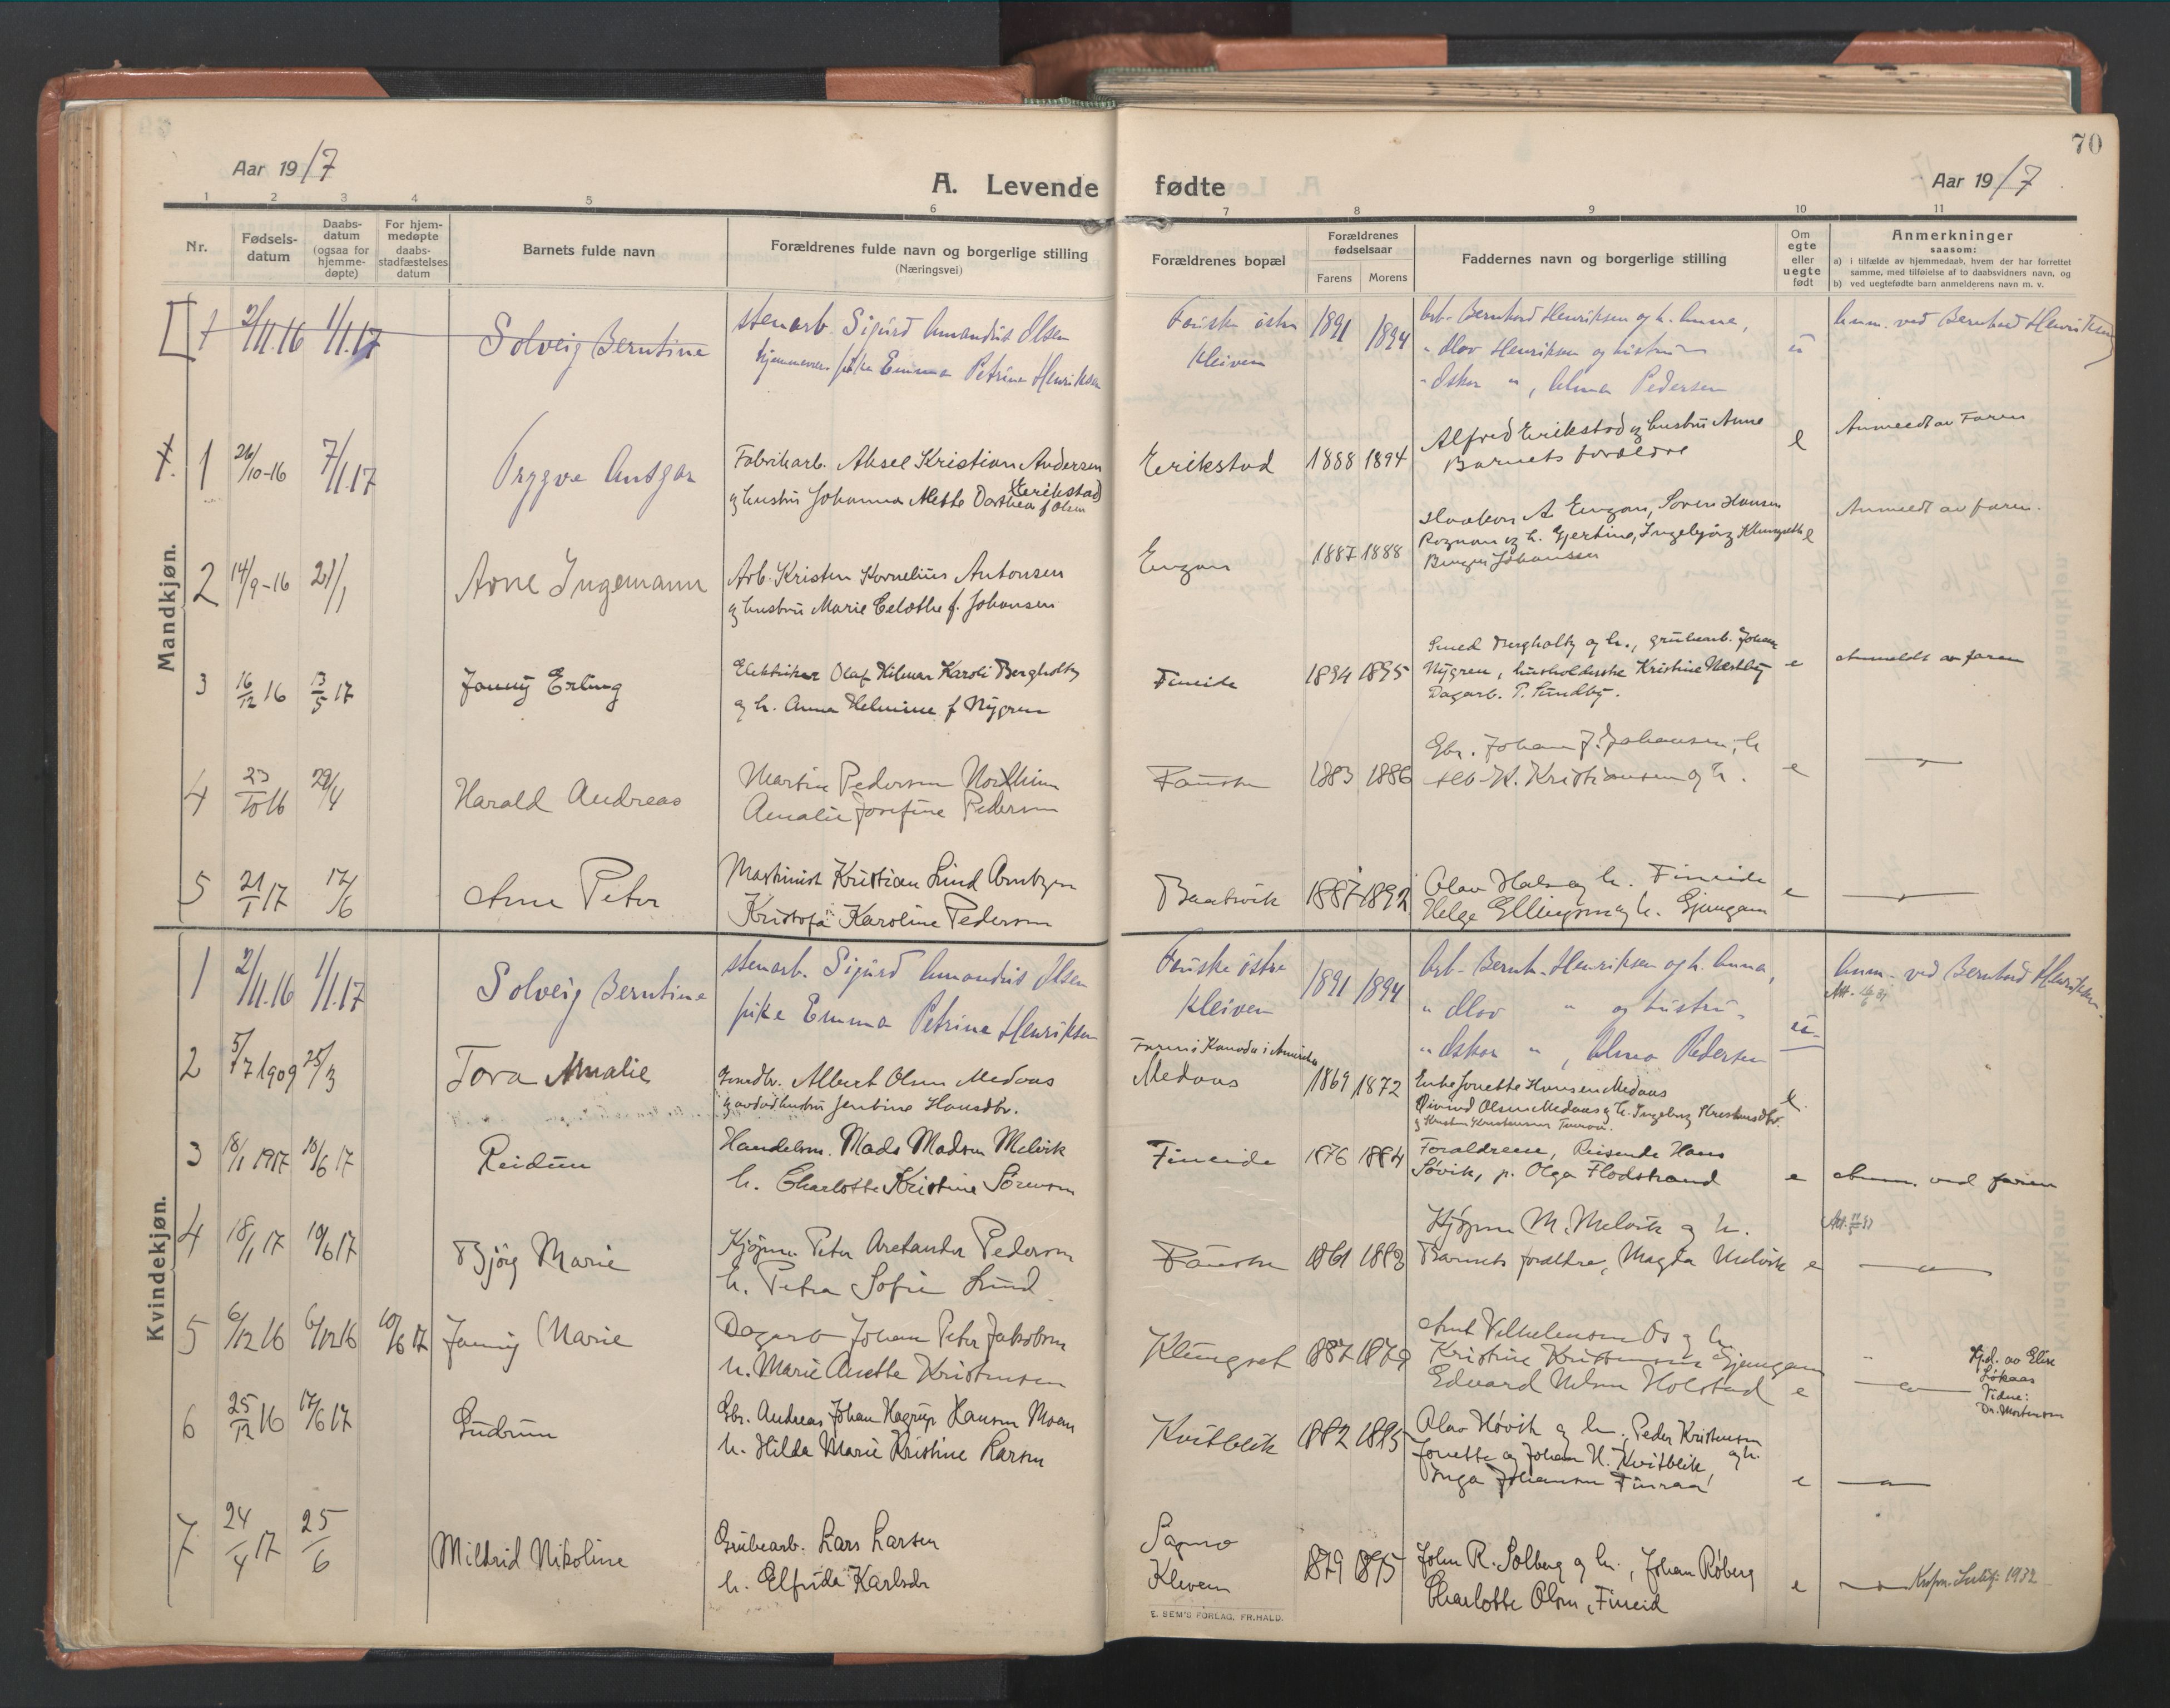 70
Aar 1917
A. Levende fødte
Aar 1917
1 2 3 4 5 6 7 8 9 10 11
Nr.
Fødsels-
datum
Daabs-
datum
(ogsaa for
hjemme-
døpte)
For hjem-
medøpte
daabs-
stadfæstelses
datum
Barnets fulde navn
Forældrenes fulde navn og borgerlige stilling
(Næringsvei)
Forældrenes bopæl
Forældrenes
fødselsaar
Farens Morens
Faddernes navn og borgerlige stilling
Om
egte
eller
uegte
født
Anmerkninger
saasom:
a) i tilfælde av hjemmedaab, hvem der har forrettet
samme, med tilføielse af to daabsvidners navn, og
b) ved uegtefødte barn anmelderens navn m. v.
1 2/11.16 1/1.17 Solveig Berntine
stenarb. Sigurd Amandus Olsen
pike Emma Petrine Henriksen
Fauske østre
Kleiven
1891 1894
Arb. Bernhard Henriksen og h. Anna,
" Olov Henriksen og hustru
" Oskar " , Alma Pedersen
u
Anm. ved Bernhard Henriksen
Mandkjøn.
1 26/10-16 7/1.17 Trygve Ansgar
Fabrikarb. Aksel Kristian Andersen
Erikstad
og hustru Johanna Mette Dorthea f. Olsen
Erikstad 1888 1894
Alfred Erikstad og hustru Anne
Barnets foreldre
e
Anmeldt av Faren
2 14/9-16 21/1 Arne Ingemann
Arb. Kristen Kornelius Antonsen
og hustru Marie f. Johansen
Engan 1887 1888
Haakon A Engan, Søren Hansen
Rognan og h. Gjertine, Ingebjørg Klungseth
Johansen
e
Anmeldt av faren.
3 16/12 16 13/5 17 Jonny Erling
Elektriker Olaf Hilmar Karoli Bergholtz
og h. Anna Helmine f. Nygren
Fineide 1894 1895
Smed Bergholtz og h., grubearb. Johan
Nygren, husholderske Kristine Nestby
Dagarb. P. Sundby.
e
Anmeldt av faren
4 23/10 16 29/4 Harald Andreas
Martin Pedersen Nordheim
Amalie Josefine Pedersen
Fauske 1883 1886
Gbr. Johan J. Johansen, h
K. Kristiansen og h.
e — " —
5 21/1 17 17/6 Arne Peter
Maskinist Kristian Lund Arntzen
Kristofa Karoline Pedersen
Baatsvik 1887 1892
Olav Hals og h. Fineide
Helge Ellingsen og h. Gjemgam
e — " —
Kvindekjøn.
1 2/11.16 1/1.17 Solveig Berntine
stenarb. Sigurd Amandus Olsen
pike Emma Petrine Henriksen
Fauske østre
Kleiven
1891 1894
Arb. Bernh. Henriksen og h. Anna,
" Olov " og hustru
" Oskar " , Alma Pedersen
u
Anm. ved Bernhard Henriksen.
2 5/7 1909 25/3 Tora Amalie
Gaardbr. Albert Olsen Medaas
og avdød hustru Jentine Hansdtr.
Faren i Kanada i Amerika
Medaas 1869 1872
Enke Jonette Hansen Medaas
Øivind Olsen Medaas og h. Ingeborg
e.
3 18/1 1917 10/6 17 Reidun
Handelsm. Mads Madsen Melvik
h. Charlotte Kristine Sørensen
Fineide 1876 1884
Foraldrene, Reisende Hans
Søvik, p. Olga Flodstrand
e
Anm. ved faren
4 18/1 17 10/6 17 Bjørg Marie
Kjøpm. Peter Aretander Pedersen
h. Petra Sofie Lund
Fauske 1861 1883
Kjøpm M. Melvik og h.
Barnets foraldre, Magda Melvik
e — " —
5 6/12 16 6/12 16 10/6 17 Jenny Marie
Dagarb Johan Peter Jakobsen
h. Marie Anette Kristensen
Klungset 1887 1879
Arnt Vilhelmsen Os og h.
Kristine Kristensen Gjemgam
Edvard Nilsen Holstad
e — " —
Hj.d. av Elise
Løkaas
Vidne:
Dr. Mortensen
6 25/12 16 17/6 17 Gudrun
Gbr. Andreas Johan Hagrup Hansen Moen
h. Hilda Marie Kristine Larsen
Kvitblik 1882 1895
Olav Høvik og h., Peder Kristensen
og h.
Jonette og Johan H. Kvitblik,
Inga Johansen Finraa
e — " —
7 24/4 17 25/6 Mildrid Nikoline
Grubearb. Lars Larsen
h. Elfrida Karlsdr
Sagmo
Kleven
1879 1895
John R. Solberg og h., Johan Røberg
Charlotte Olsen, Fineid
e — " — 1932
E. SEM'S FORLAG, FR.HALD.